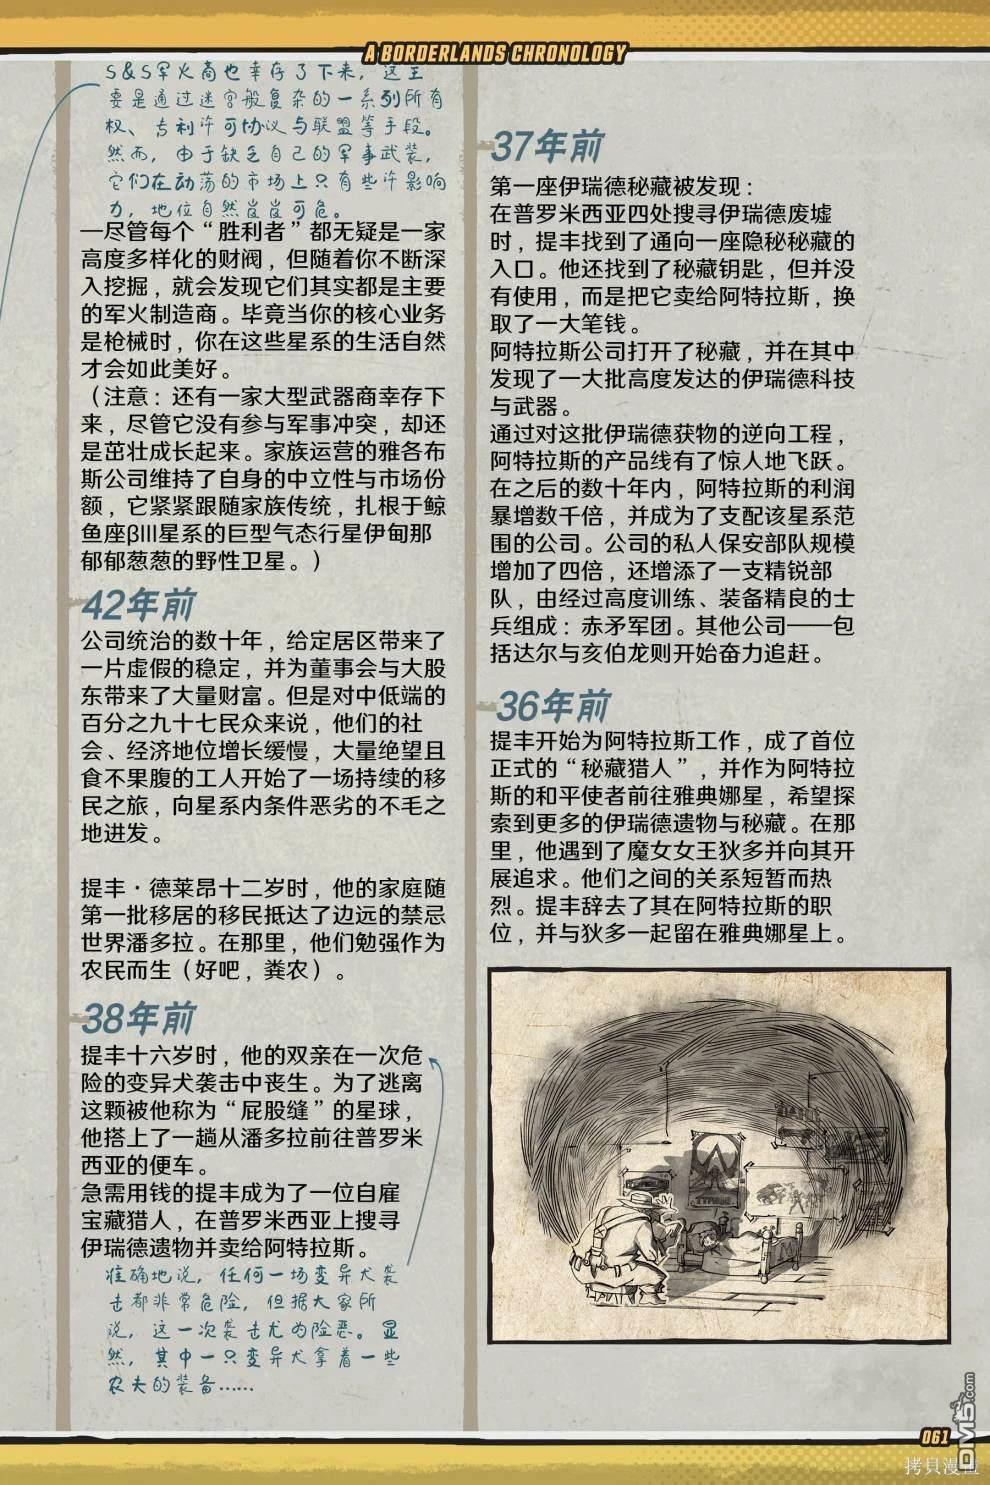 A BORDERLANDS CHRONOLOGY
S&S军火商也幸存了下来，这主
要是通过迷宫般复杂的一系列所有
权、专利许可协议与联盟等手段。
然而，由于缺乏自己的军事武装，
它们在动荡的市场上只有些许影响
力，地位自然岌岌可危。
—尽管每个“胜利者”都无疑是一家
高度多样化的财阀，但随着你不断深
入挖掘，就会发现它们其实都是主要
的军火制造商。毕竟当你的核心业务
是枪械时，你在这些星系的生活自然
才会如此美好。
（注意：还有一家大型武器商幸存下
来，尽管它没有参与军事冲突，却还
是茁壮成长起来。家族运营的雅各布
斯公司维持了自身的中立性与市场份
额，它紧紧跟随家族传统，扎根于鲸
鱼座βIII星系的巨型气态行星伊甸那
郁郁葱葱的野性卫星。）
42年前
公司统治的数十年，给定居区带来了
一片虚假的稳定，并为董事会与大股
东带来了大量财富。但是对中低端的
百分之九十七民众来说，他们的社
会、经济地位增长缓慢，大量绝望且
食不果腹的工人开始了一场持续的移
民之旅，向星系内条件恶劣的不毛之
地进发。
提丰·德莱昂十二岁时，他的家庭随
第一批移居的移民抵达了边远的禁忌
世界潘多拉。在那里，他们勉强作为
农民而生（好吧，粪农）。
38年前
提丰十六岁时，他的双亲在一次危
险的变异犬袭击中丧生。为了逃离
这颗被他称为“屁股缝”的星球，
他搭上了一趟从潘多拉前往普罗米
西亚的便车。
急需用钱的提丰成为了一位自雇
宝藏猎人，在普罗米西亚上搜寻
伊瑞德遗物并卖给阿特拉斯。
准确地说，任何一场变异犬袭
击都非常危险，但据大家所
说，这一次袭击尤为险恶。显
然，其中一只变异犬拿着一些
农夫的装备……
37年前
第一座伊瑞德秘藏被发现：
在普罗米西亚四处搜寻伊瑞德废墟
时，提丰找到了通向一座隐秘秘藏的
入口。他还找到了秘藏钥匙，但并没
有使用，而是把它卖给阿特拉斯，换
取了一大笔钱。
阿特拉斯公司打开了秘藏，并在其中
发现了一大批高度发达的伊瑞德科技
与武器。
通过对这批伊瑞德获物的逆向工程，
阿特拉斯的产品线有了惊人地飞跃。
在之后的数十年内，阿特拉斯的利润
暴增数千倍，并成为了支配该星系范
围的公司。公司的私人保安部队规模
增加了四倍，还增添了一支精锐部
队，由经过高度训练、装备精良的士
兵组成：赤矛军团。其他公司——包
括达尔与亥伯龙则开始奋力追赶。
36年前
提丰开始为阿特拉斯工作，成了首位
正式的“秘藏猎人”，并作为阿特拉
斯的和平使者前往雅典娜星，希望探
索到更多的伊瑞德遗物与秘藏。在那
里，他遇到了魔女女王狄多并向其开
展追求。他们之间的关系短暂而热
烈。提丰辞去了其在阿特拉斯的职
位，并与狄多一起留在雅典娜星上。
061
DM5.com
拷貝漫畫